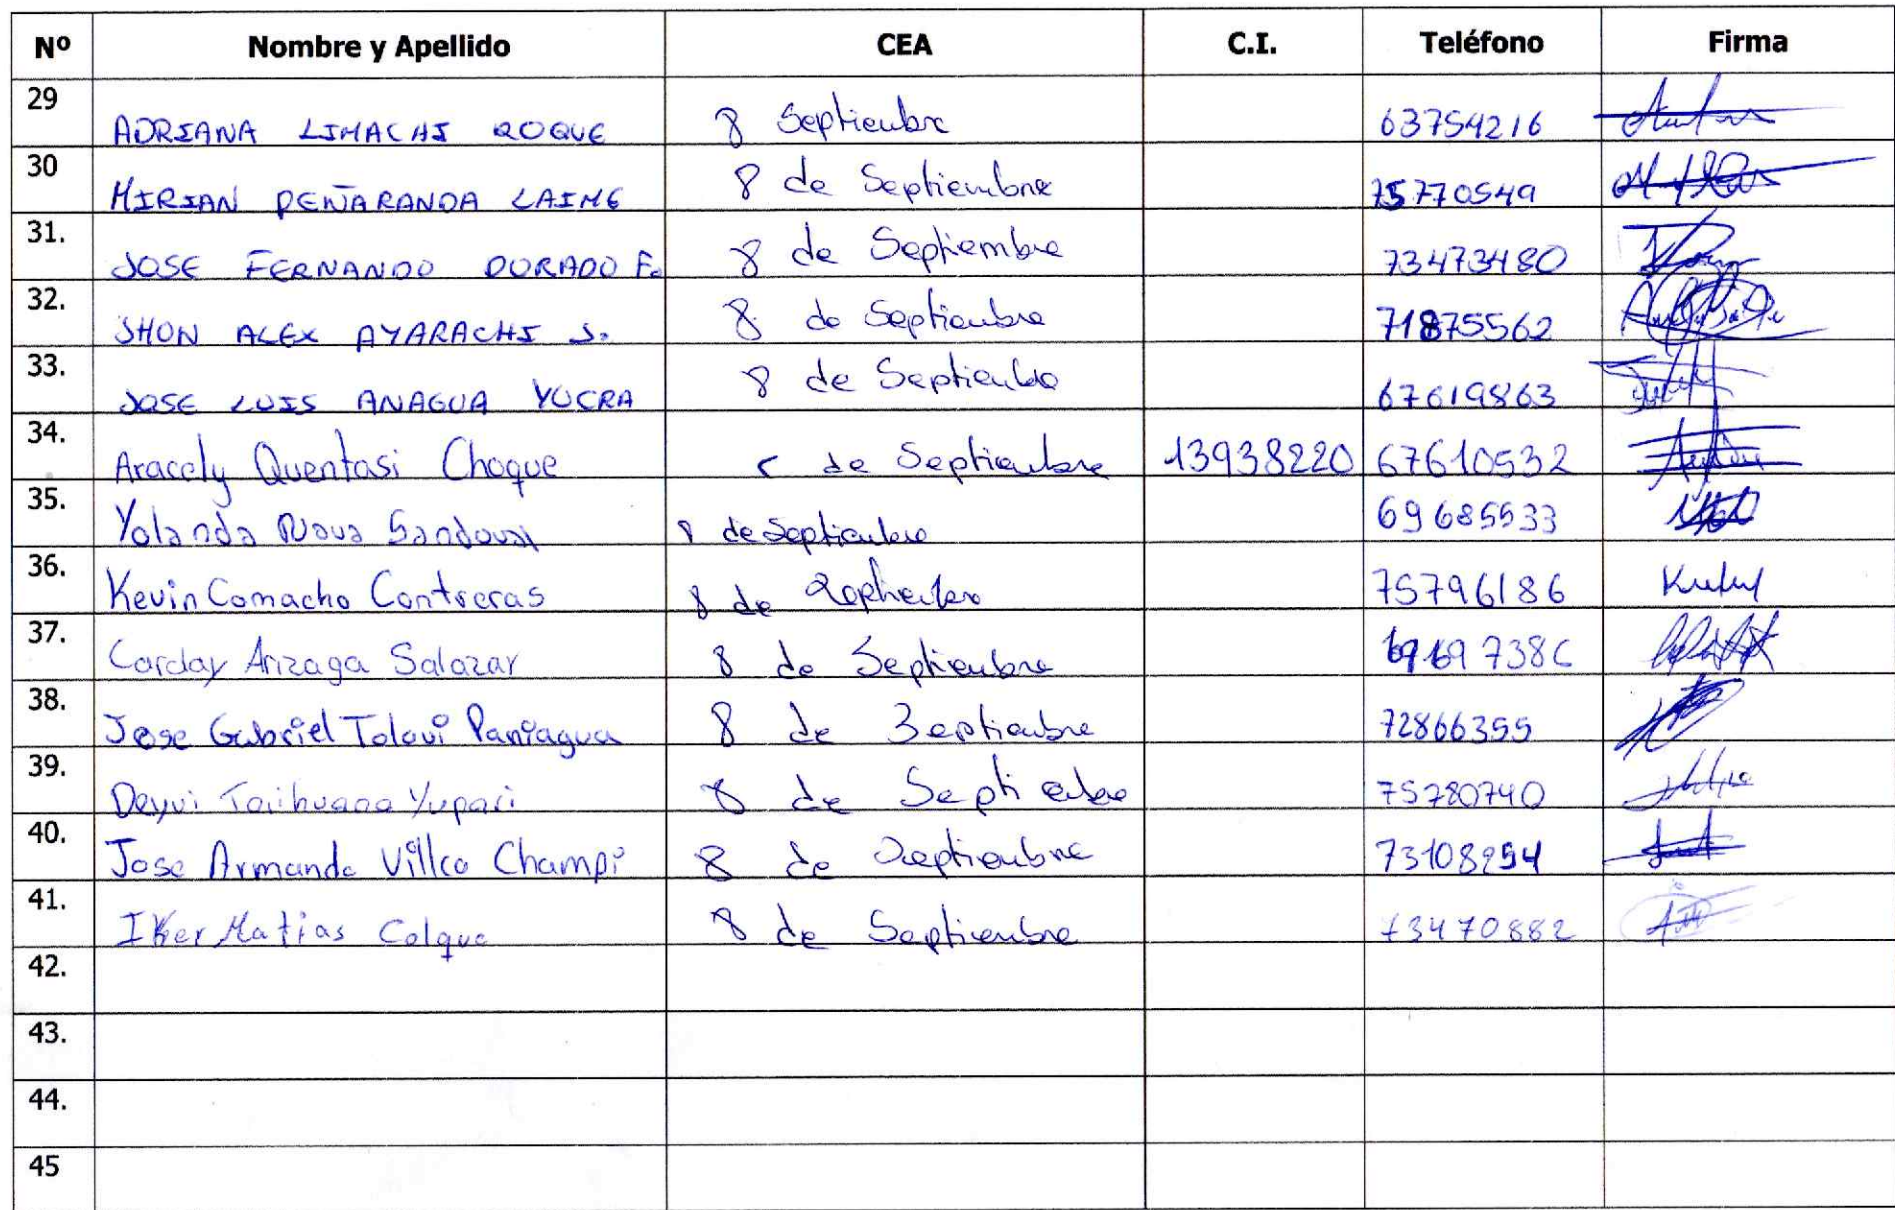 Nº Nombre y Apellido CEA C.I. Teléfono Firma
29 ADRIANA LIMACHI ROQUE 8 Septiembre 63754216
30 MIRIAN PEÑARANDA LAIME 8 de Septiembre 75770549
31. JOSE FERNANDO DORADO F. 8 de Septiembre 73473480
32. JHON ALEX AYARACHI S. 8 de Septiembre 71875562
33. JOSE LUIS ANAGUA YUCRA 8 de Septiembre 67619863
34. Aracely Quentasi Choque de Septiembre 13938220 67610532
35. Yolanda Nava Sandoval 8 de Septiembre 69685533
36. Kevin Camacho Contreras 8 de Septiembre 75796186
37. Carday Arizaga Salazar 8 de Septiembre
38. Jose Gabriel Tolavi Paniagua 8 de Septiembre 72866355
39. Deyvi Yupari 8 de Septiembre 75780740
40. Jose Armando Villca Champi 8 de Septiembre
41. Iker Matias Colque 8 de Septiembre 73470882
42.
43.
44.
45